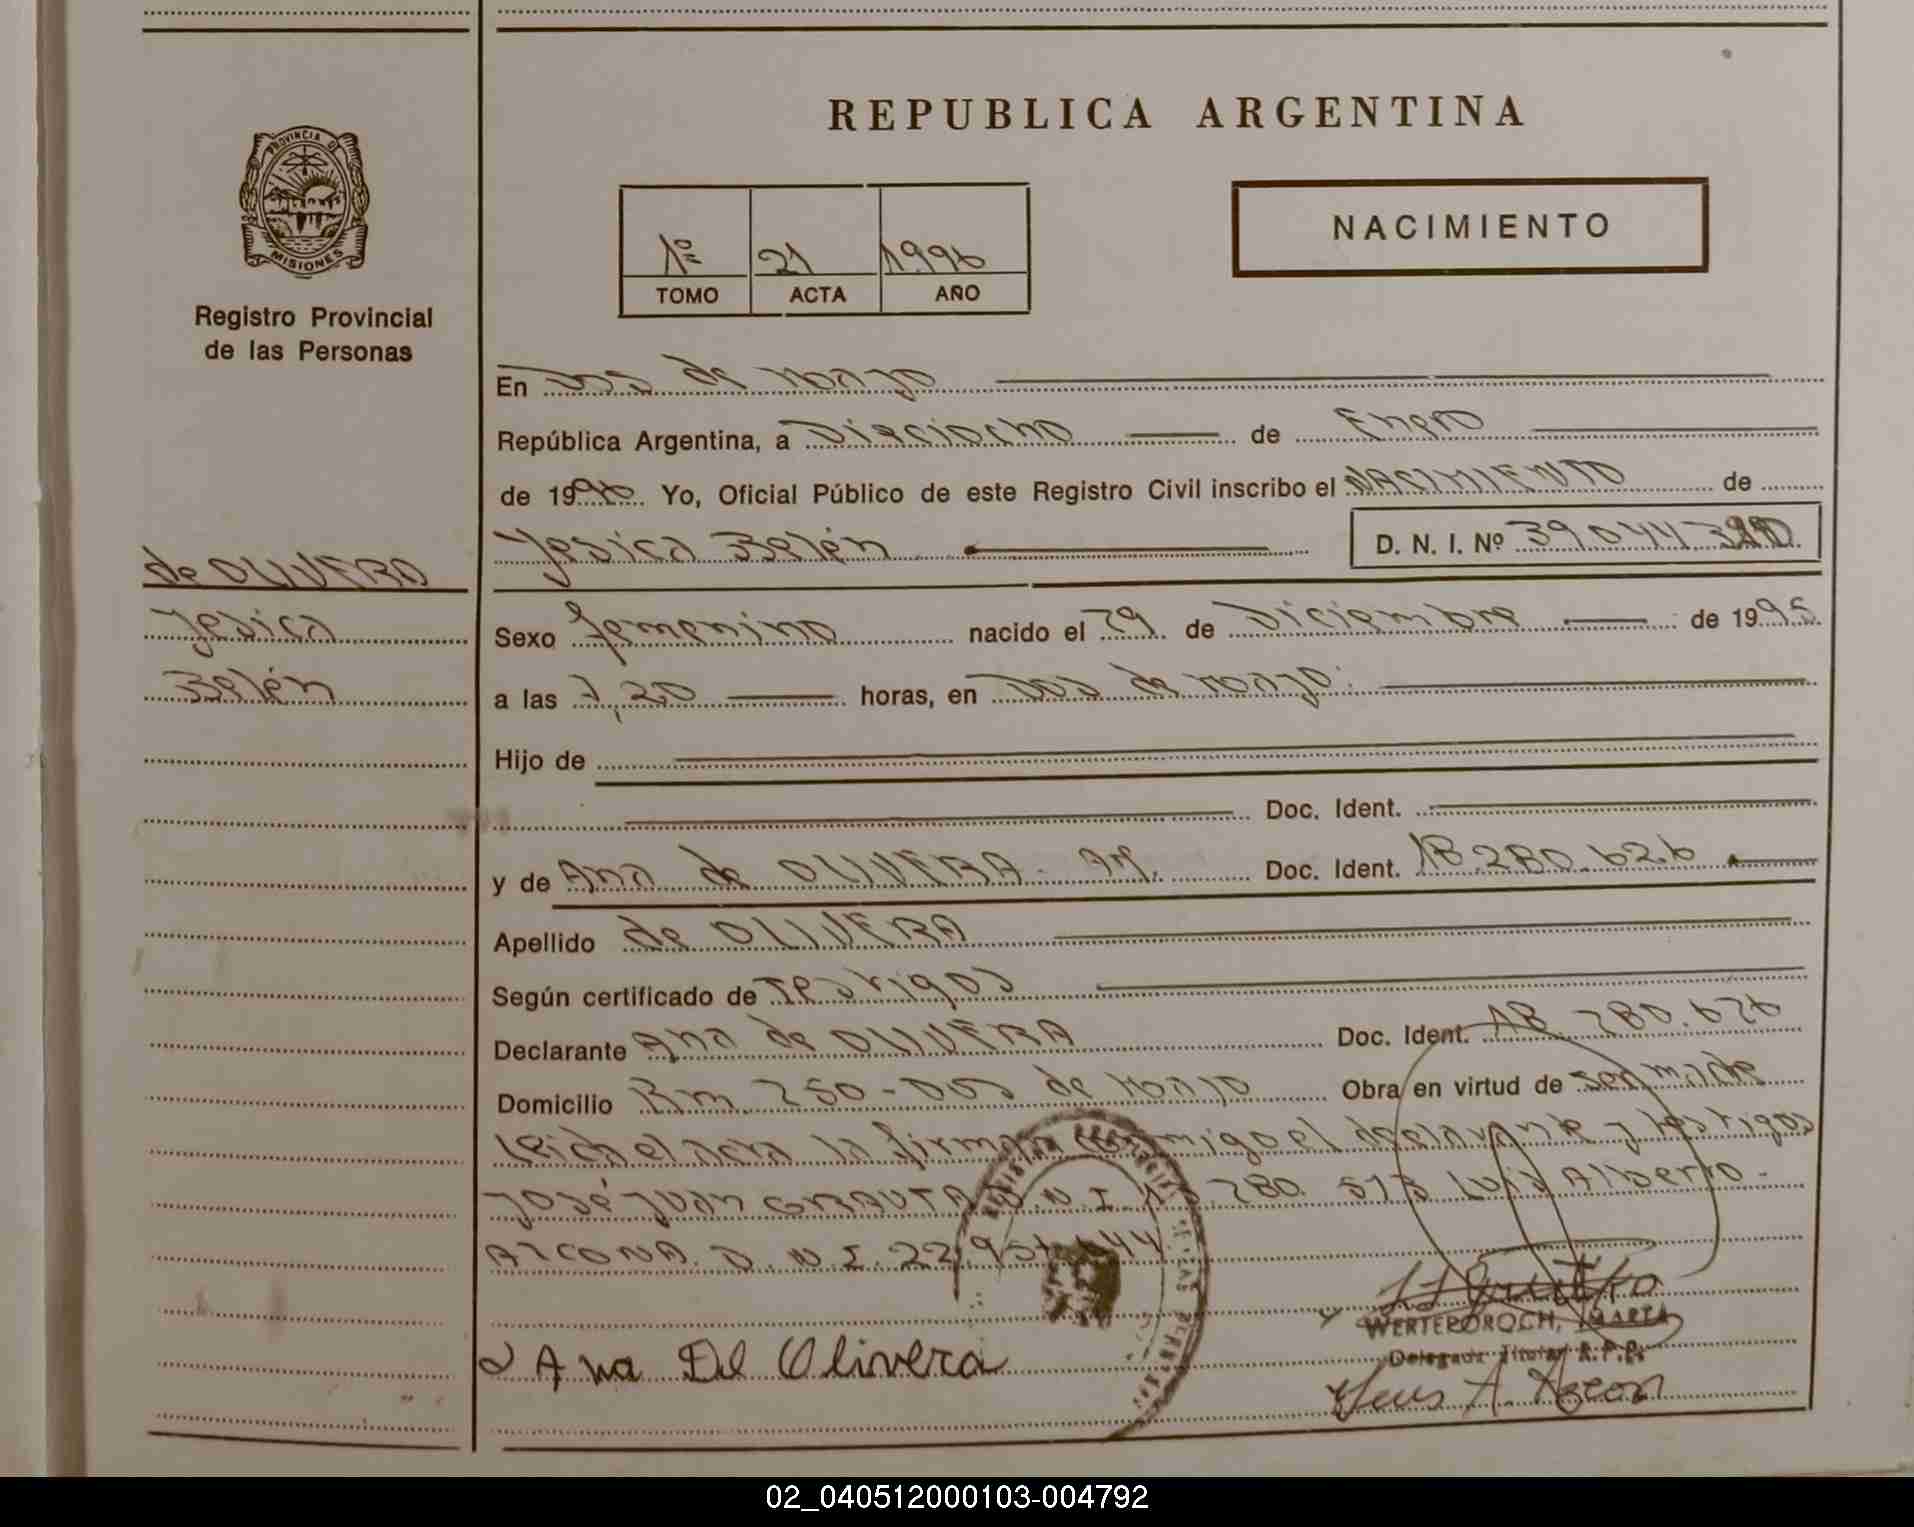 REPUBLICA ARGENTINA
PROVINCIA D
MISIONES
Registro Provincial
de las Personas
NACIMIENTO
1º 21 1996
TOMO ACTA AÑO
En Dos de Mayo
República Argentina, a Dieciocho de Enero
de 1996 Yo, Oficial Público de este Registro Civil inscribo el NACIMIENTO de
Yesica Belén D. N. I. Nº 39044
de OLIVERA
Yesica
Belén
Sexo femenino nacido el 29 de Diciembre de 1995
a las 7,20 horas, en Dos de Mayo.
Hijo de
Doc. Ident.
y de Ana de OLIVERA. Ar. Doc. Ident. 18.280.626
Apellido de OLIVERA
Según certificado de Testigos
Declarante Ana de OLIVERA Doc. Ident. 18.280.626
Domicilio Km 250-Dos de Mayo Obra en virtud de ser madre
Leida el acta la firman conmigo el declarante y testigos
José Juan D.N.I. 280. 513 Luis Alberto
AZCONA. D.N.I. 22.951.644
Ana Del Olivera
WERTEPOROCH, MARTA
Delegada Titular R.P.P.
Luis A. Azcon
02_040512000103-004792